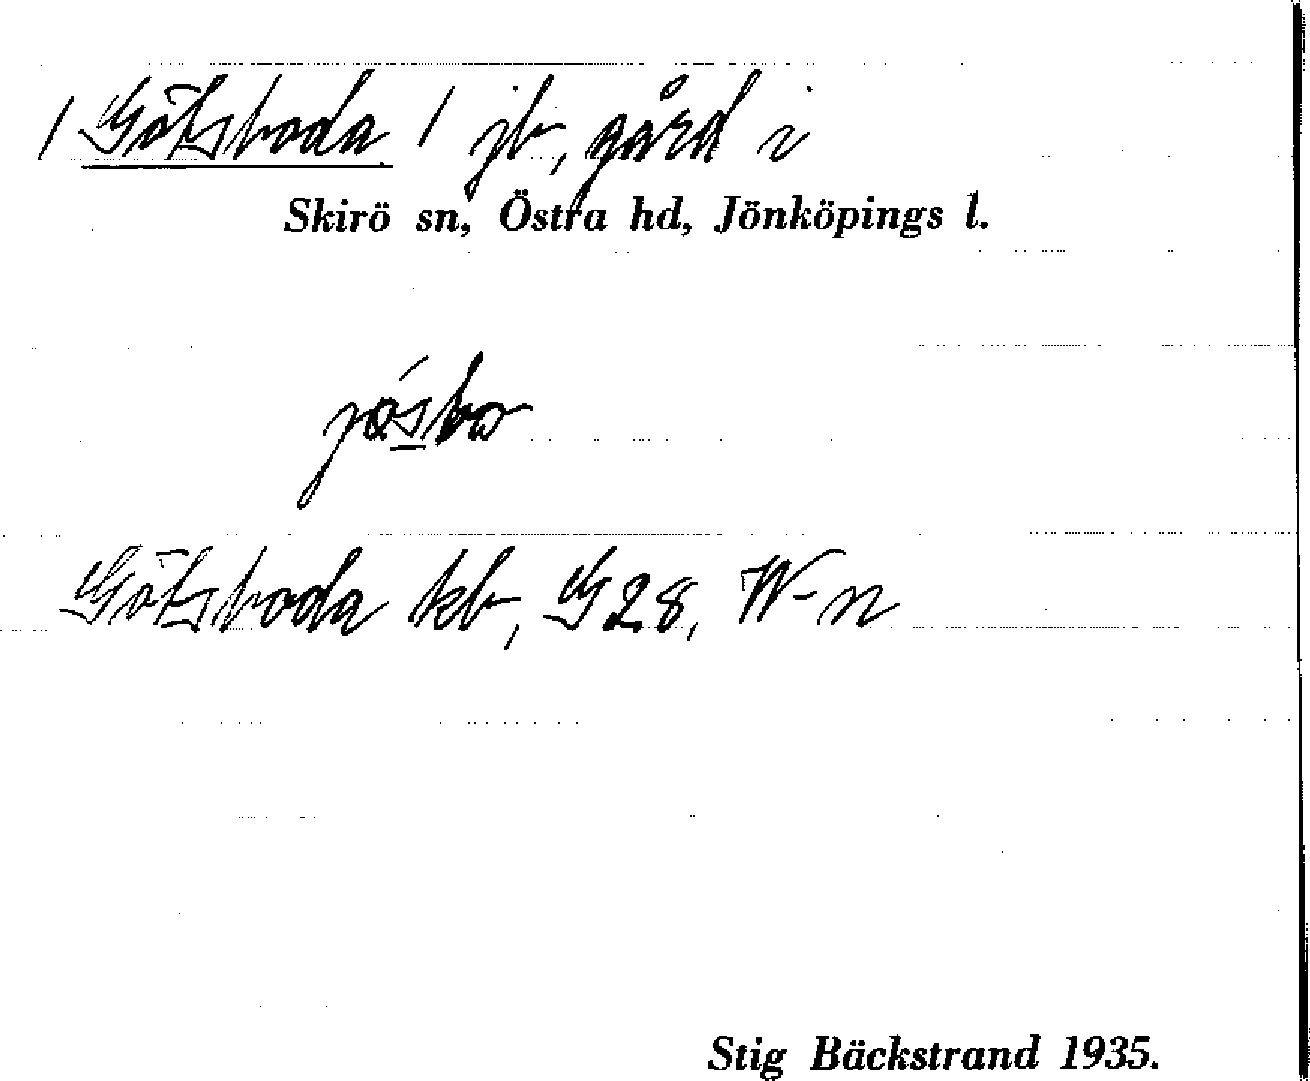 / Götsboda / jb, gård i
Skirö sn, Östra hd, Jönköpings l.
jo̗´sbo
Götsboda kb, G 28, W-n
Stig Bäckstrand 1935.